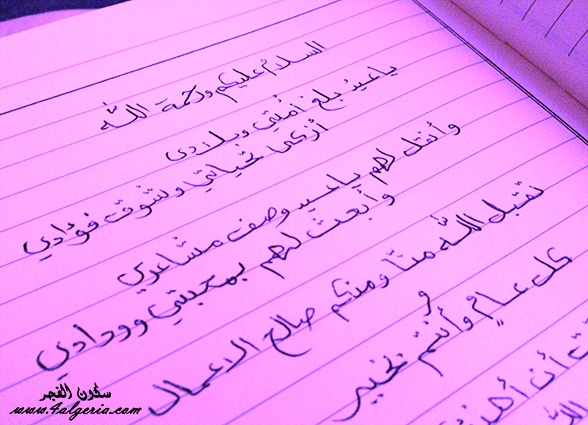 السلام عليكم ورحمة الله
يا عيد بلغ أمتي وبلادي
أزكى تحياتي وشوق فؤادي
وأنقل لهم يا عيد وصف مشاعري
وأبعث لهم بمحبتي وودادي
تقبل الله منا ومنكم صالح الاعمال
و
كل عام وأنتم بخير
أن
سكون الفجر
www.4algeria.com